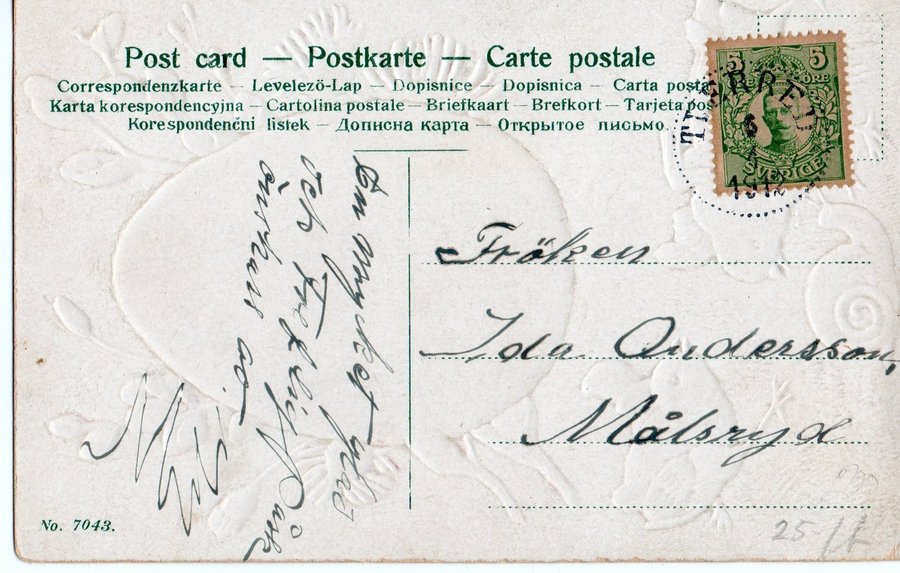 Post card — Postkarte — Carte postale
Correspondenzkarte — Levelező-Lap — Dopisnice — Dopisnica — Carta posta
Karta korespondencyjna — Cartolina postale — Briefkaart — Brefkort — Tarjeta pos
Korespondenční lístek — Дописна карта — Открытое письмо
5 5
ÖRE
SVERIGE
1912
En Mycket glad
och Treflig Påsk
önskas av
Fröken
Ida Andersson,
Målsryd
No. 7043.
25